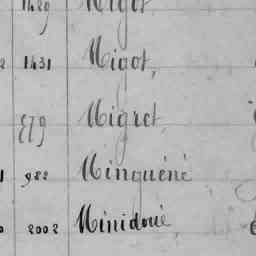 1429 Migot
1431 Migot,
879 Migret,
982 Minguéné
2002 Ménidoué